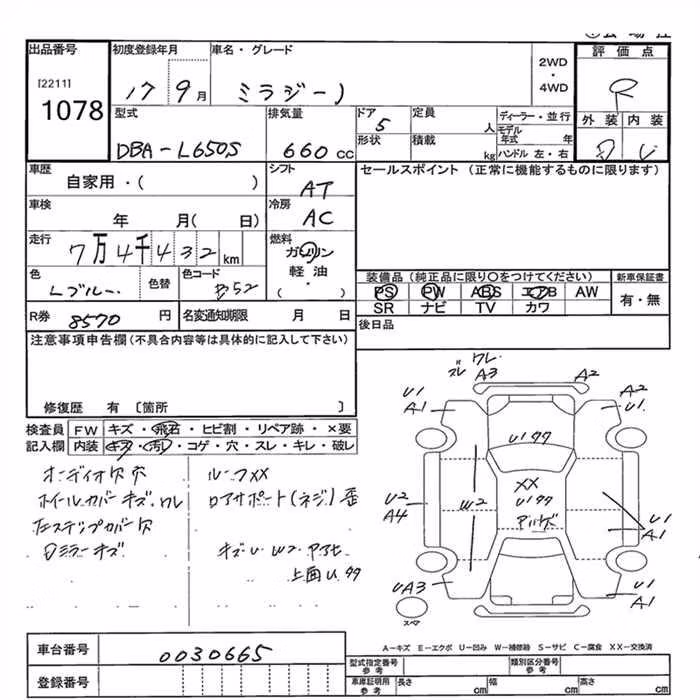 出品番号
[2211]
1078
初度登録年月
17 9月
車名・グレード
ミラジーノ
2WD
・
4WD
評価点
R
外装 内装
D
型式
DBA-L650S
排気量
660 cc
ドア
5
形状
定員
人
積載
kg
ディーラー・並行
モデル
年式 年
ハンドル 左・右
車歴
自家用・( )
シフト
AT
セールスポイント (正常に機能するものに限ります)
車検
年 月( 日)
冷房
AC
走行
7万4千432 km
燃料
ガソリン
軽油
・
( )
色
Lブルー
色替
色コード
B52
装備品 (純正品に限り○をつけてください)
新車保証書
PS PW ABS エアB AW
SR ナビ TV カワ
有・無
R券 8570 円
名変通知期限 月 日
後日品
注意事項申告欄 (不具合内容等は具体的に記入して下さい)
修復歴 有 〔箇所 〕
検査員 FW キズ・飛石・ヒビ割・リペア跡・×要
記入欄 内装 キズ・汚レ・コゲ・穴・スレ・キレ・破レ
オーディオ穴
ホイールカバーキズ、ワレ
左ステップカバー穴
Dミラーキズ
ルーフXX
ロアサポート(ネジ)歪
キズU W2
上面U
ズレ ワレ
A3
A2
U1
A1
A2
U1
U1
XX
U1
W2
U2
A4
U1
A1
UA3
U1
A1
スペア
A-キズ E-エクボ U-凹み W-補修跡 S-サビ C-腐食 XX-交換済
車台番号 0030665
登録番号
型式指定番号
参考
類別区分番号
参考
車庫証明用
参考
長さ cm
幅 cm
高さ cm